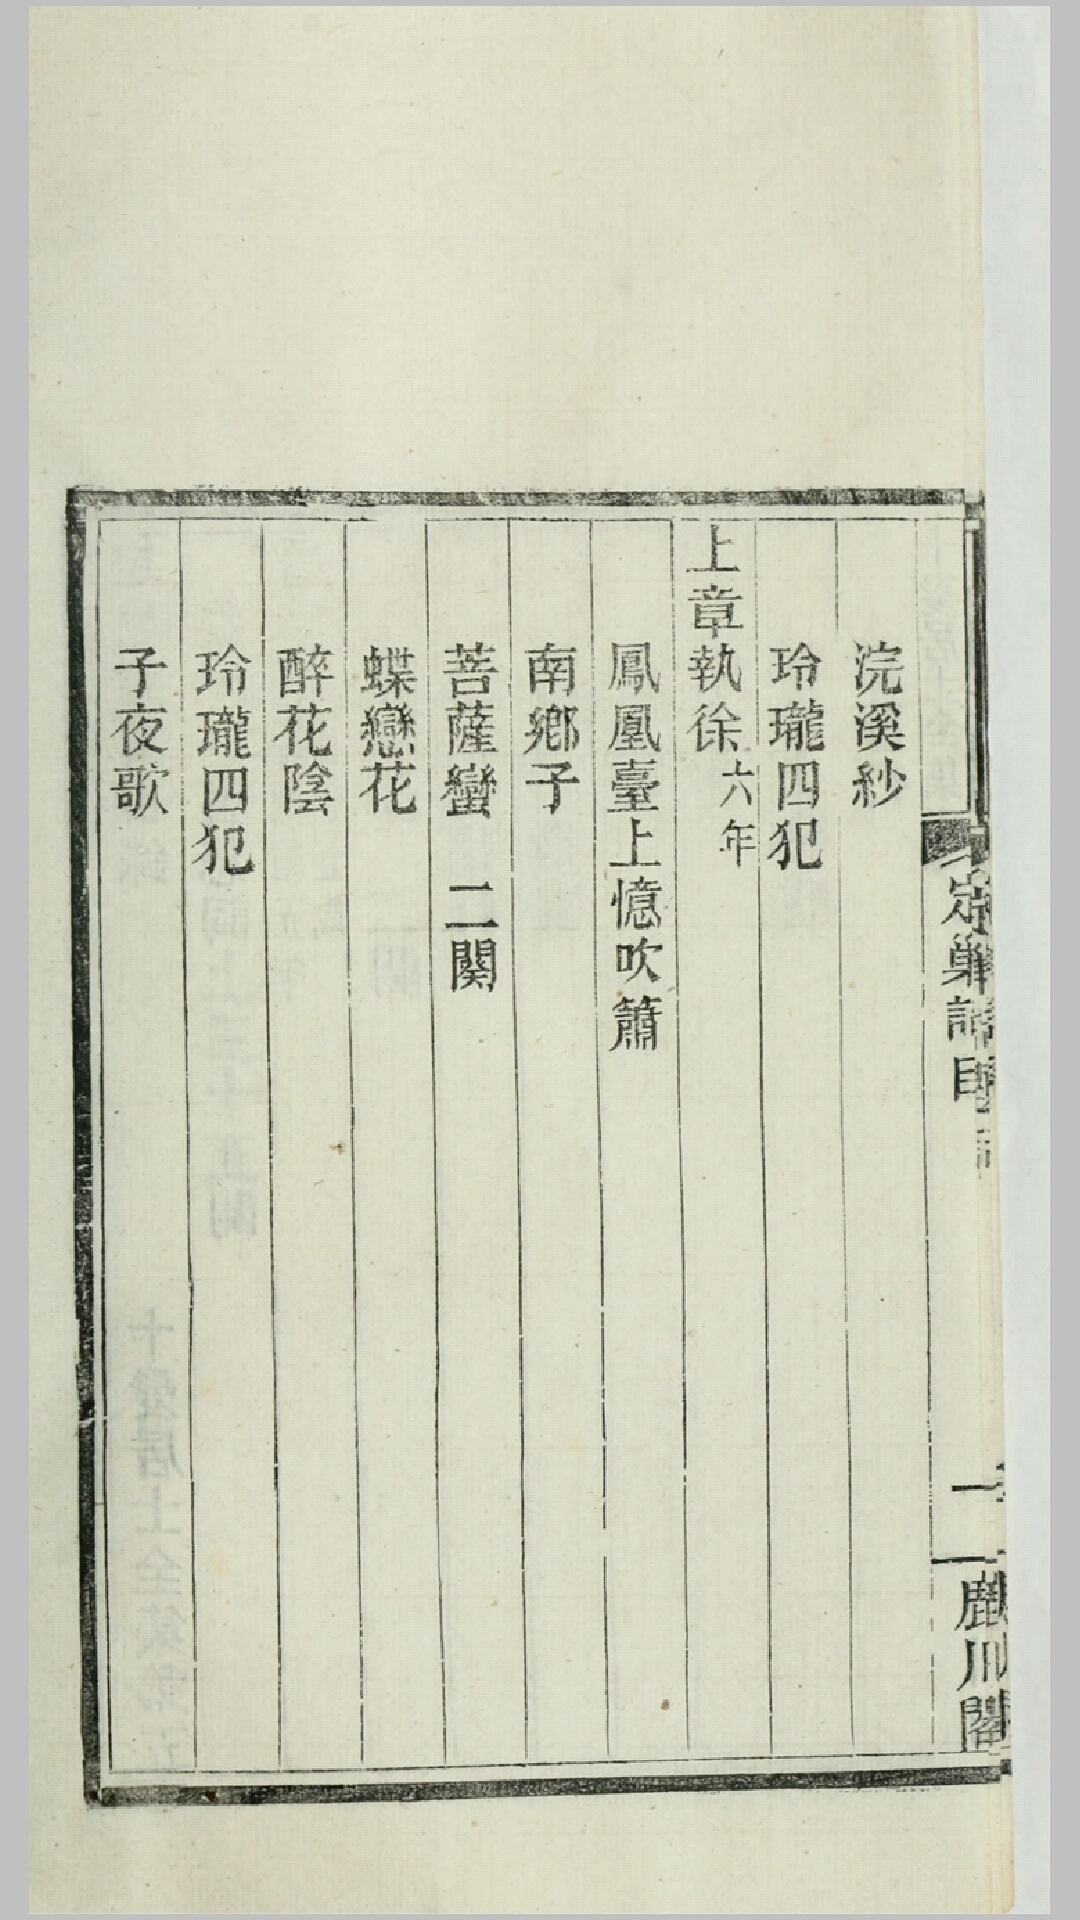 浣溪紗
玲瓏四犯
上章執徐六年
鳳凰臺上憶吹簫
南鄉子
菩薩蠻 二闋
蝶戀花
醉花陰
玲瓏四犯
子夜歌
定巢詞目
一
鹿川閣